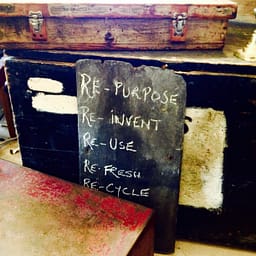 RE-PURPOSE
RE-INVENT
RE-USE
RE-FRESH
RE-CYCLE